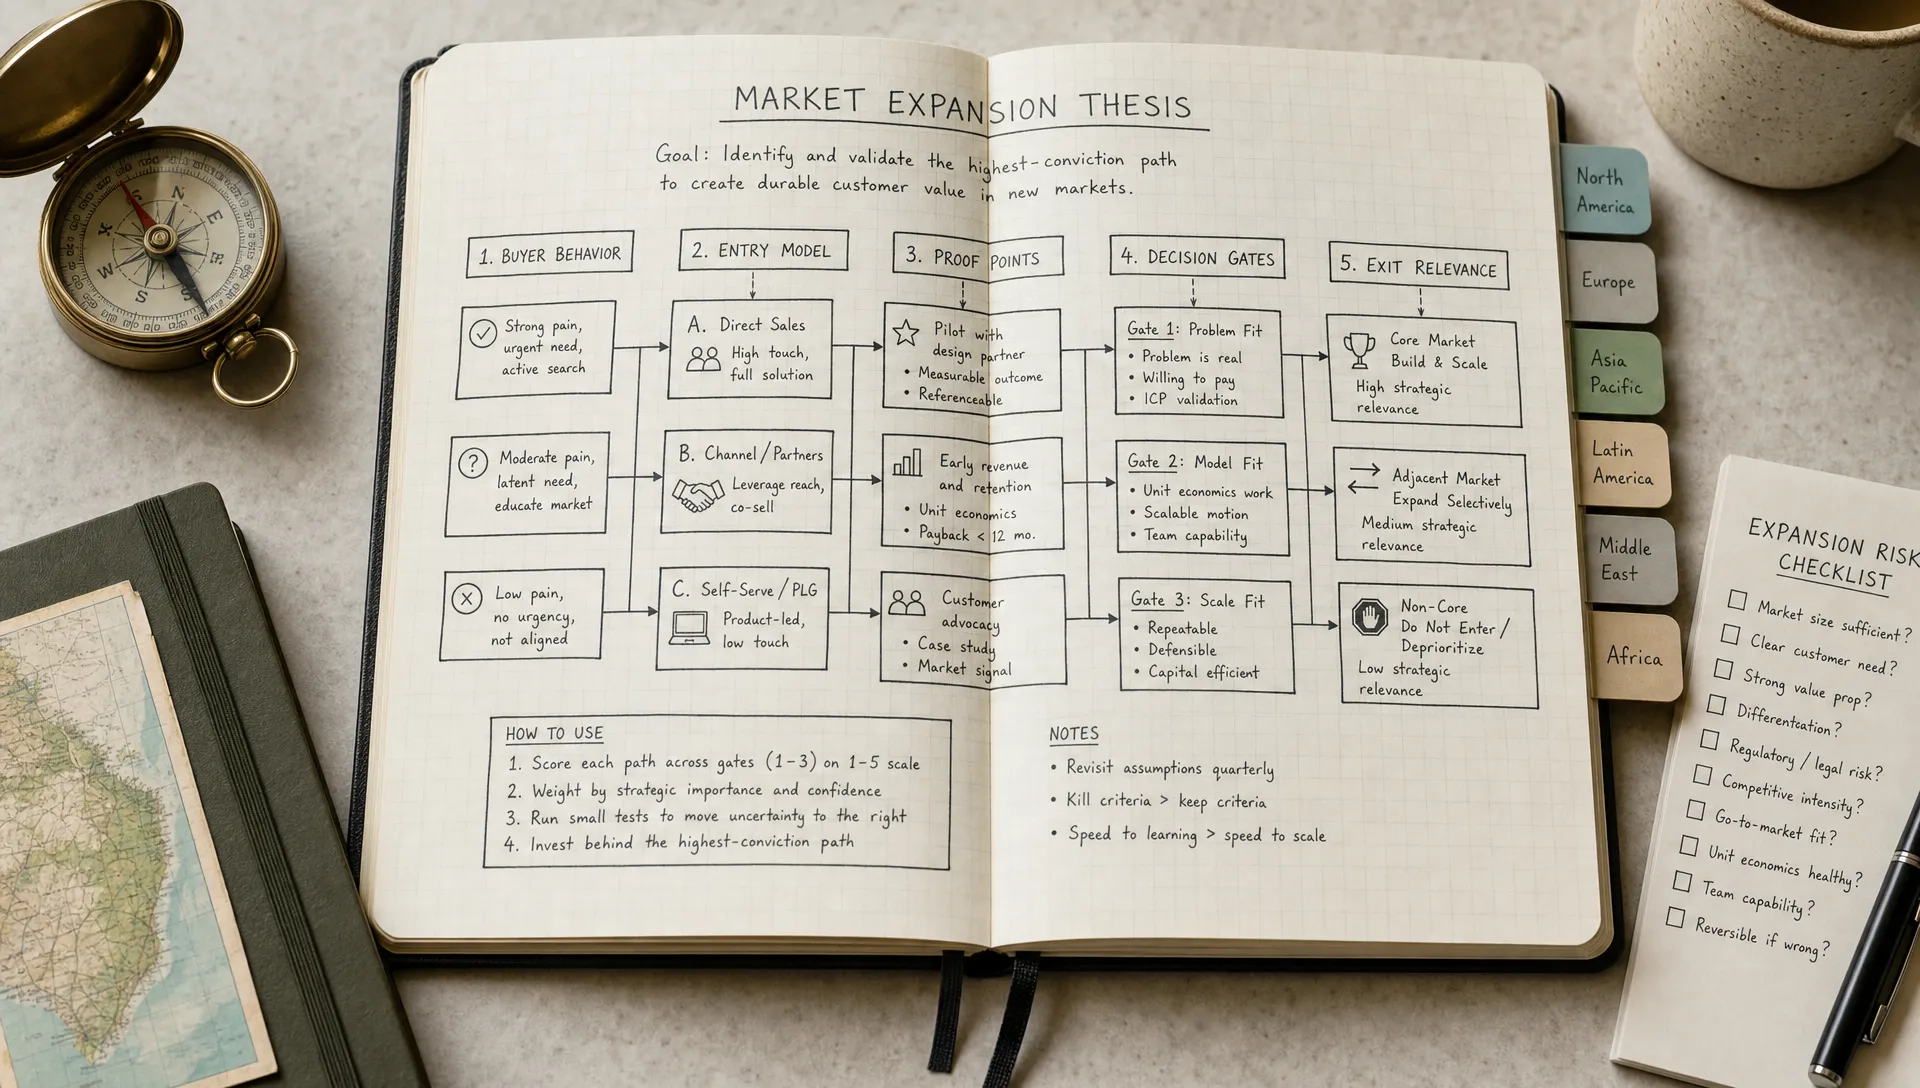 MARKET EXPANSION THESIS
Goal: Identify and validate the highest-conviction path
to create durable customer value in new markets.
1. BUYER BEHAVIOR
Strong pain,
urgent need,
active search
Moderate pain,
latent need,
educate market
Low pain,
no urgency,
not aligned
2. ENTRY MODEL
A. Direct Sales
High touch,
full solution
B. Channel / Partners
Leverage reach,
co-sell
C. Self-Serve / PLG
Product-led,
low touch
3. PROOF POINTS
Pilot with
design partner
• Measurable outcome
• Referenceable
Early revenue
and retention
• Unit economics
• Payback < 12 mo.
Customer
advocacy
• Case study
• Market signal
4. DECISION GATES
Gate 1: Problem Fit
• Problem is real
• Willing to pay
• ICP validation
Gate 2: Model Fit
• Unit economics work
• Scalable motion
• Team capability
Gate 3: Scale Fit
• Repeatable
• Defensible
• Capital efficient
5. EXIT RELEVANCE
Core Market
Build & Scale
High strategic
relevance
Adjacent Market
Expand Selectively
Medium strategic
relevance
Non-Core
Do Not Enter /
Deprioritize
Low strategic
relevance
HOW TO USE
1. Score each path across gates (1-3) on 1-5 scale
2. Weight by strategic importance and confidence
3. Run small tests to move uncertainty to the right
4. Invest behind the highest-conviction path
NOTES
• Revisit assumptions quarterly
• Kill criteria > keep criteria
• Speed to learning > speed to scale
North
America
Europe
Asia
Pacific
Latin
America
Middle
East
Africa
EXPANSION RISK
CHECKLIST
Market size sufficient?
Clear customer need?
Strong value prop?
Differentcation?
Regulatory / legal risk?
Competitive intensity?
Go-to-market fit?
Unit economics healthy?
Team capability?
Reversible if wrong?
N
E
S
W